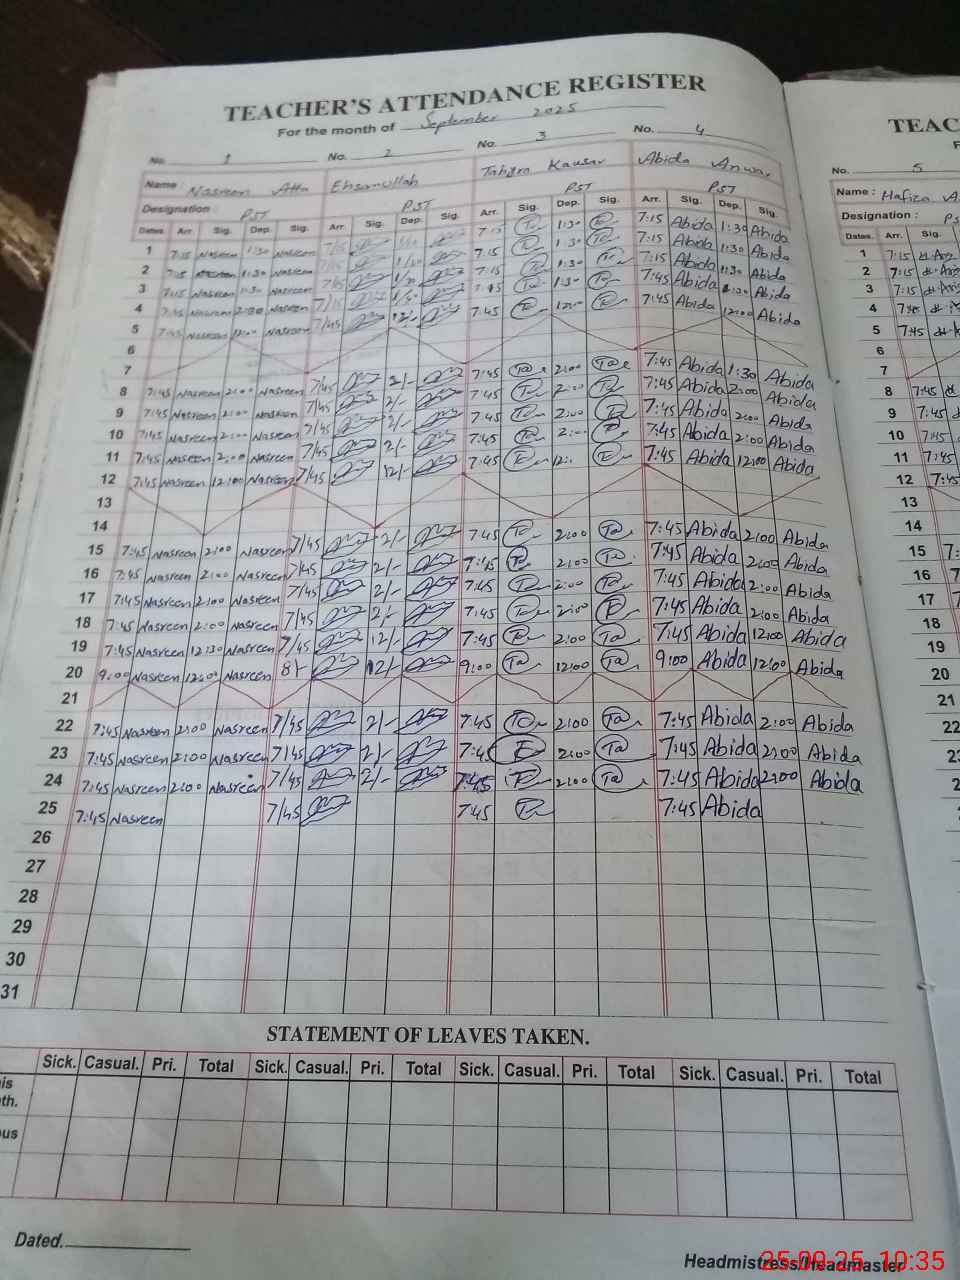 TEACHER'S ATTENDANCE REGISTER
For the month of September 2025
No. 1 No. 2 No. 3 No. 4
Name : Nasreen Atta Ehsanullah Tahira Kausar Abida Anwar
Designation : PST PST PST PST
Dates. Arr. Sig. Dep. Sig. Arr. Sig. Dep. Sig. Arr. Sig. Dep. Sig. Arr. Sig. Dep. Sig.
1 7:15 Nasreen 1:30 Nasreen 7/15 7:15 1:30 7:15 Abida 1:30 Abida
2 7:15 Nasreen 1:30 Nasreen 7:15 1:30 7:15 Abida 1:30 Abida
3 7:15 Nasreen 1:30 Nasreen 7:15 1:30 7:15 Abida 1:30 Abida
4 Nasreen Nasreen 7/15 1:30 7:45 Abida Abida
5 7:45 Nasreen 12:00 Nasreen 7/45 12/- 7:45 7:45 Abida 12:00 Abida
6
7
8 7:45 Nasreen 2:00 Nasreen 7/45 2/- 7:45 Ta 2:00 Ta 7:45 Abida 1:30 Abida
9 7:45 Nasreen 2:00 Nasreen 7/45 2/- 7:45 2:00 7:45 Abida 2:00 Abida
10 7:45 Nasreen 2:00 Nasreen 7/45 2/- 7:45 2:00 7:45 Abida 2:00 Abida
11 7:45 Nasreen 2:00 Nasreen 7/45 2/- 7:45 2:00 7:45 Abida 2:00 Abida
12 7:45 Nasreen 12:00 Nasreen 7/45 12/- 7:45 12: 7:45 Abida 12:00 Abida
13
14
15 7:45 Nasreen 2:00 Nasreen 7/45 2/- 7:45 Ta 2:00 Ta 7:45 Abida 2:00 Abida
16 7:45 Nasreen 2:00 Nasreen 7/45 2/- 7:45 2:00 Ta 7:45 Abida 2:00 Abida
17 7:45 Nasreen 2:00 Nasreen 7/45 2/- 7:45 2:00 Ta 7:45 Abida 2:00 Abida
18 7:45 Nasreen 2:00 Nasreen 7/45 2/- 7:45 2:00 7:45 Abida 2:00 Abida
19 7:45 Nasreen 12:30 Nasreen 7/45 12/- 7:45 2:00 Ta 7:45 Abida 12:00 Abida
20 9:00 Nasreen 12:00 Nasreen 8/- 12/- 9:00 Ta 12:00 Ta 9:00 Abida 12:00 Abida
21
22 7:45 Nasreen 2:00 Nasreen 7/45 2/- 7:45 2:00 Ta 7:45 Abida 2:00 Abida
23 7:45 Nasreen 2:00 Nasreen 7/45 2/- 7:45 2:00 Ta 7:45 Abida 2:00 Abida
24 7:45 Nasreen 2:00 Nasreen 7/45 2/- 7:45 2:00 Ta 7:45 Abida 2:00 Abida
25 7:45 Nasreen 7/45 7:45 7:45 Abida
26
27
28
29
30
31
STATEMENT OF LEAVES TAKEN.
Sick. Casual. Pri. Total Sick. Casual. Pri. Total Sick. Casual. Pri. Total Sick. Casual. Pri. Total
is
th.
us
Dated.
Headmistress/Headmaster
25-09-25 10:35
TEAC
F
No. 5
Name : Hafiza A
Designation : PS
Dates. Arr. Sig.
1 7:15
2 7:15
3 7:15
4 7:45
5 7:45
6
7
8 7:45
9 7:45
10 7:45
11 7:45
12 7:45
13
14
15 7:
16 7
17 7
18
19
20
21
22
23
2
2